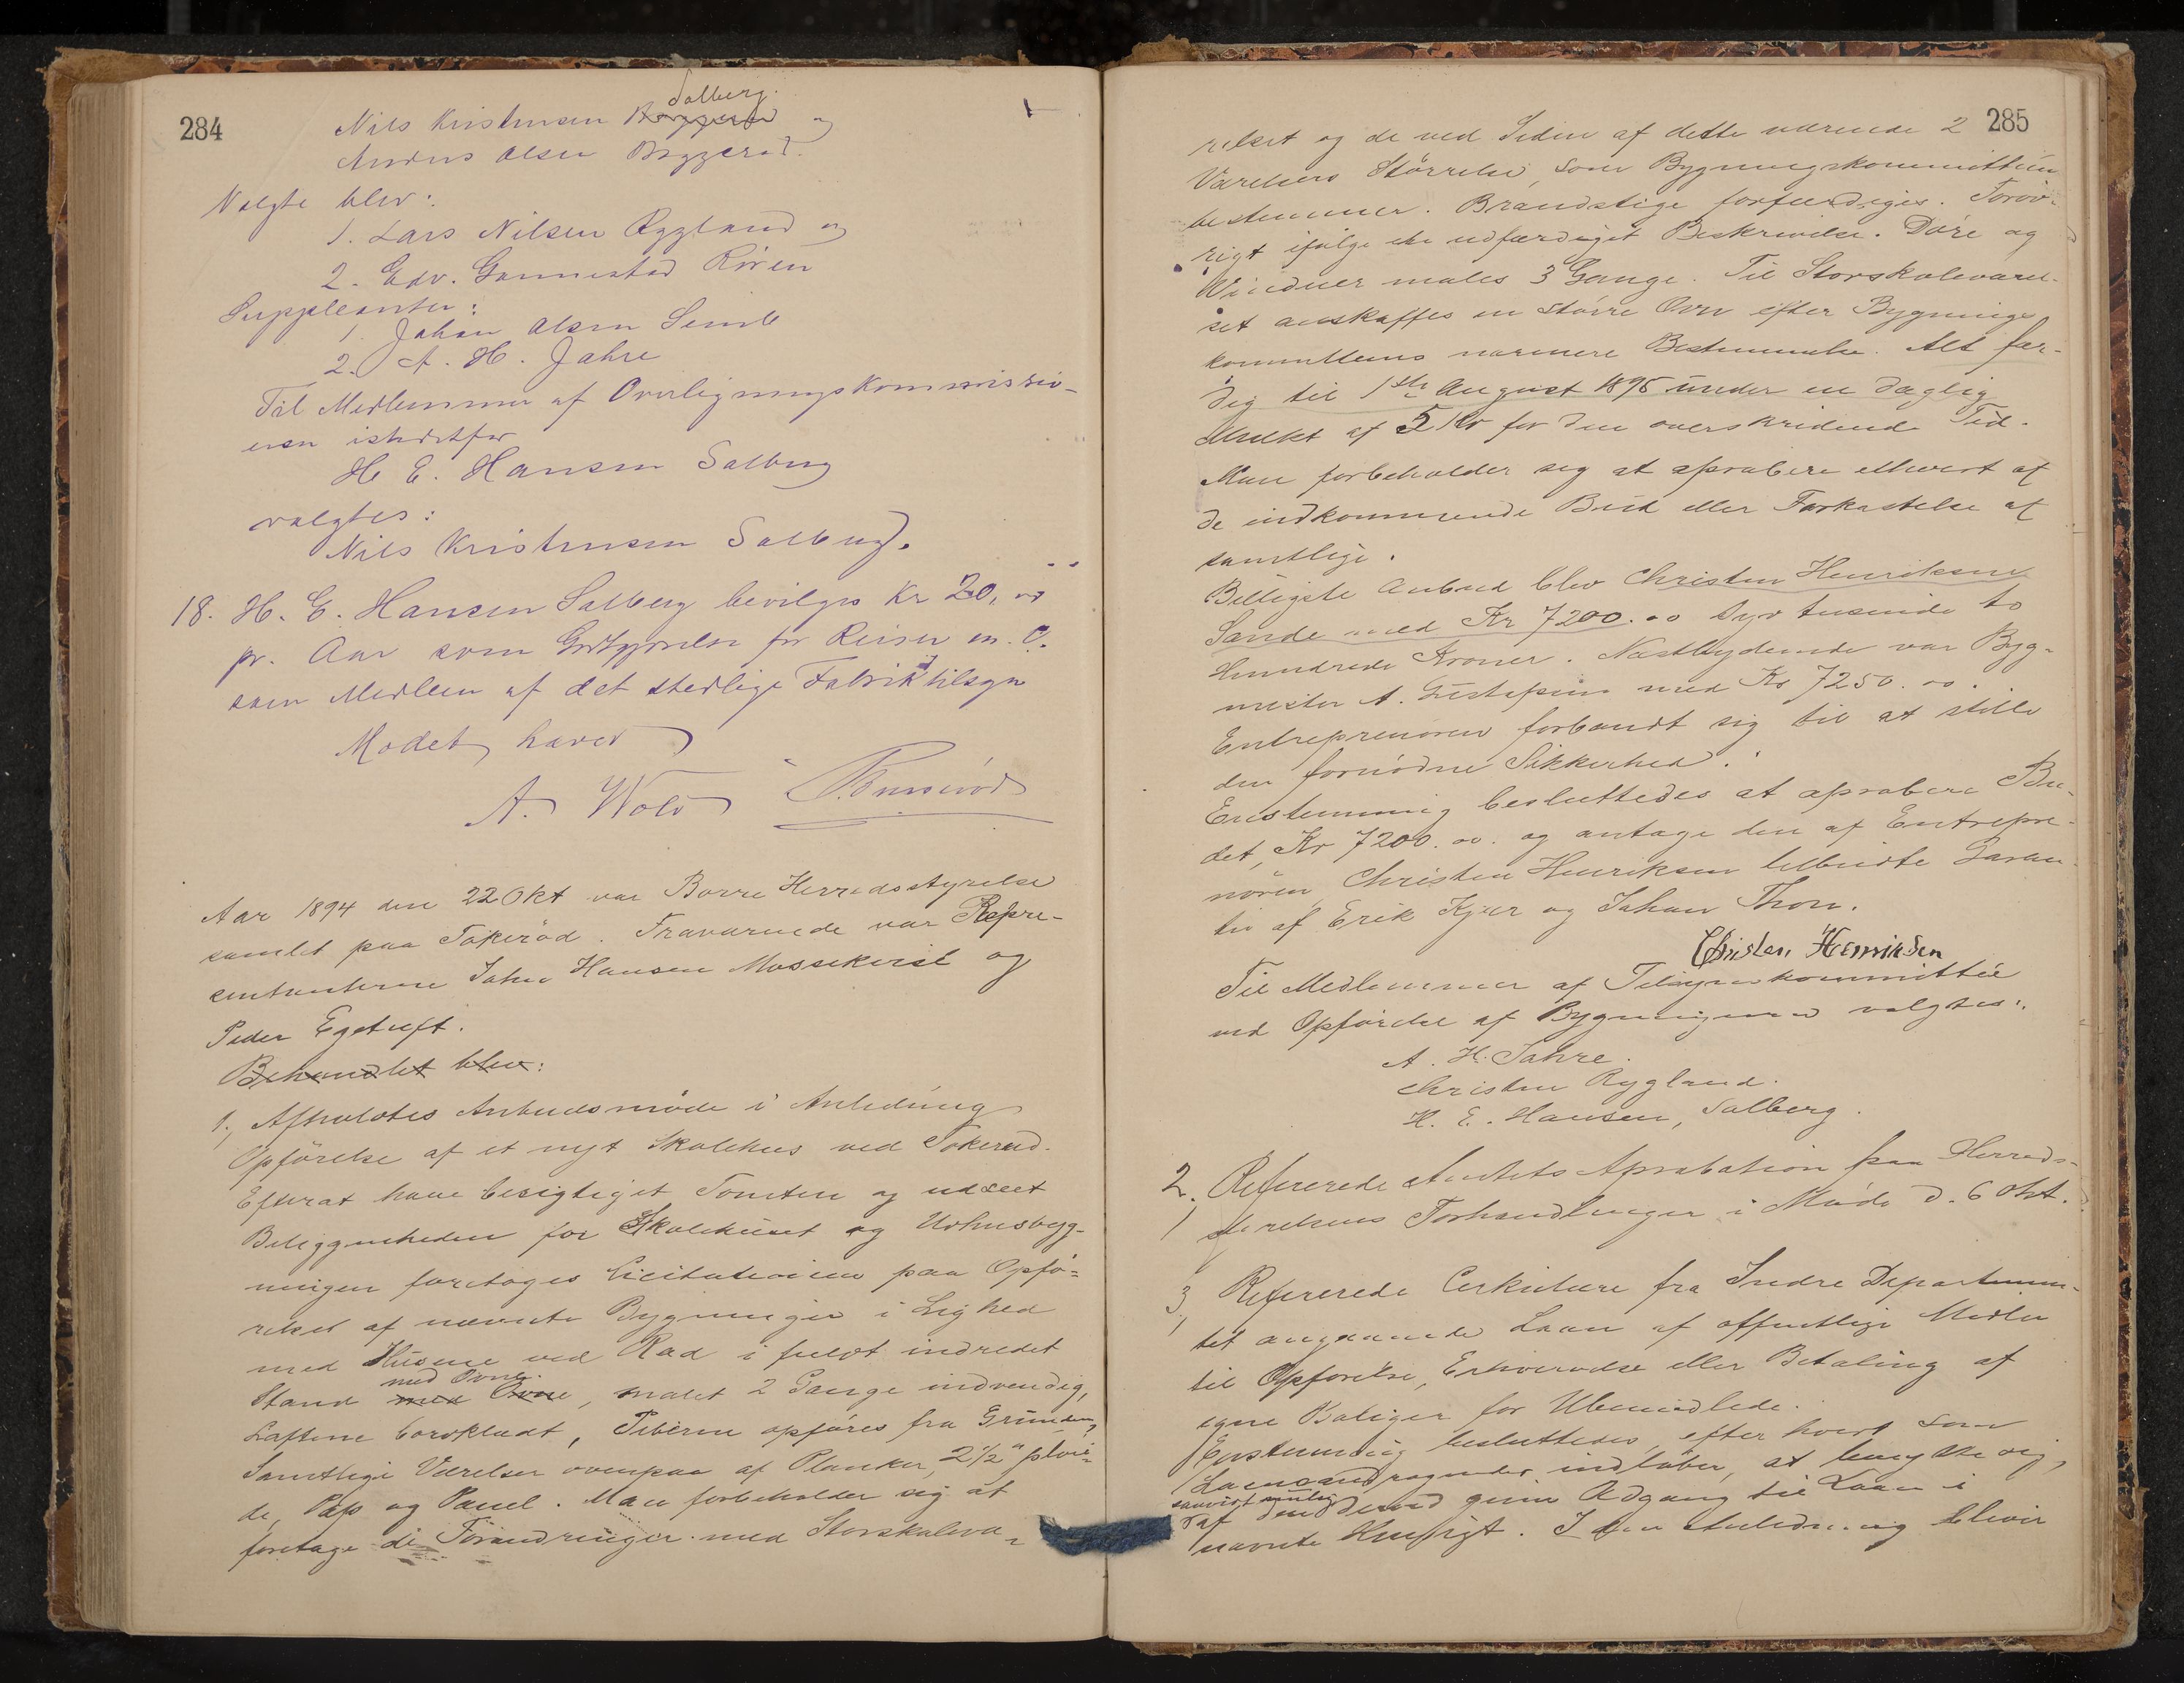 284
Nils Kristensen Salberg og
Anders Olsen Bøggerød.
Valgte blev:
1. Lars Nilsen Rygland og
2. Edv. Gannestad Røren
Suppleanter:
1. Johan Olsen Semb
2. A. H. Jahre
Til Medlemmer af Overligningskommissio-
nen istedetfor
H. E. Hansen Salberg
valgtes:
Nils Kristensen Salberg.
18. H. E. Hansen Salberg bevilges Kr 20,00
pr. Aar som Godtgjørelse for Reiser m. v.
som Medlem af det stedlige Fabriktilsyn
Mødet hævet
A. Wold
Aar 1894 den 22 Okt var Borre Herredsstyrelse
samlet paa Tokerød. Fraværende var Repre-
sentanterne Johan Hansen Mossekvist og
Peder Egetuft.
Behandlet blev:
1, Afholdtes Anbudsmøde i Anledning
Opførelse af et nyt Skolehus ved Tokerød.
Efterat have besigtiget Tomten og udseet
Beliggenheden for Skolehuset og Udhusbyg-
ningen foretoges Licitationen paa Opfø-
relsen af nævnte Bygninger i Lighed
med Husene ved Rød i fuldt indredet
med Ovne.
Stand med Ovne, malet 2 Gange indvendig,
Lofterne bordklædt, Piberne opføres fra Grunden,
Samtlige Værelser ovenpaa af Planker, 2 1/2" pløie-
de, Pap og Panel. Man forbeholder sig at
foretage de Forandringer med Storskolevæ-
285
relset og de ved Siden af dette værende 2
Værelsers Størrelse, som Bygningskommitteen
bestemmer. Brandstige forfærdiges. Forøv-
rigt ifølge den udfærdiget Beskrivelse. Døre og
Vinduer males 3 Gange. Til Storskoleværel-
set anskaffes en større Ovn efter Bygnings
kommiteens nærmere Bestemmelse. Alt fær-
dig til 1ste August 1895 under en daglig
Mulkt af 5 Kr for den overskridende Tid.
Man forbeholder sig at aprobere ethvert af
de indkommende Bud eller Forkastelse af
samtlige.
Billigste Anbud blev Christen Henriksen
Sande med Kr 7200.00 Syv tusinde to
Hundrede Kroner. Næstbydende var Byg-
mester A. Gustafsen med Kr 7250.00.
Entreprenøren forbandt sig til at stille
den fornødne Sikkerhed.
Enstemmig besluttedes at aprobere Bu-
det, Kr 7200.00. og antage den af Entrepre-
nøren Christen Henriksen tilbudte Garan-
ti af Erik Kjær og Johan Thon.
Christen Henriksen
Til Medlemmer af Tilsynskommittée
ved Opførelse af Bygningerne valgtes:
A. H. Jahre.
Christen Rygland.
H. E. Hansen, Salberg.
2, Refererede Amtets Aprobation paa Herreds-
sterelsens Forhandlinger i Møde d. 6 Okt.
3, Refererede Cirkulære fra Indre Departemen-
tet angaaende Laan af offentlige Midler
til Opførelse, Erhvervelse eller Betaling af
egne Boliger for Ubemidlede.
Enstemmig besluttedes, efter hvert som
Laaneandragender indløber, at benytte sig,
saavidt mulig
af den derved givne Adgang til Laan i
nævnte Hensigt. I den Anledning bliver